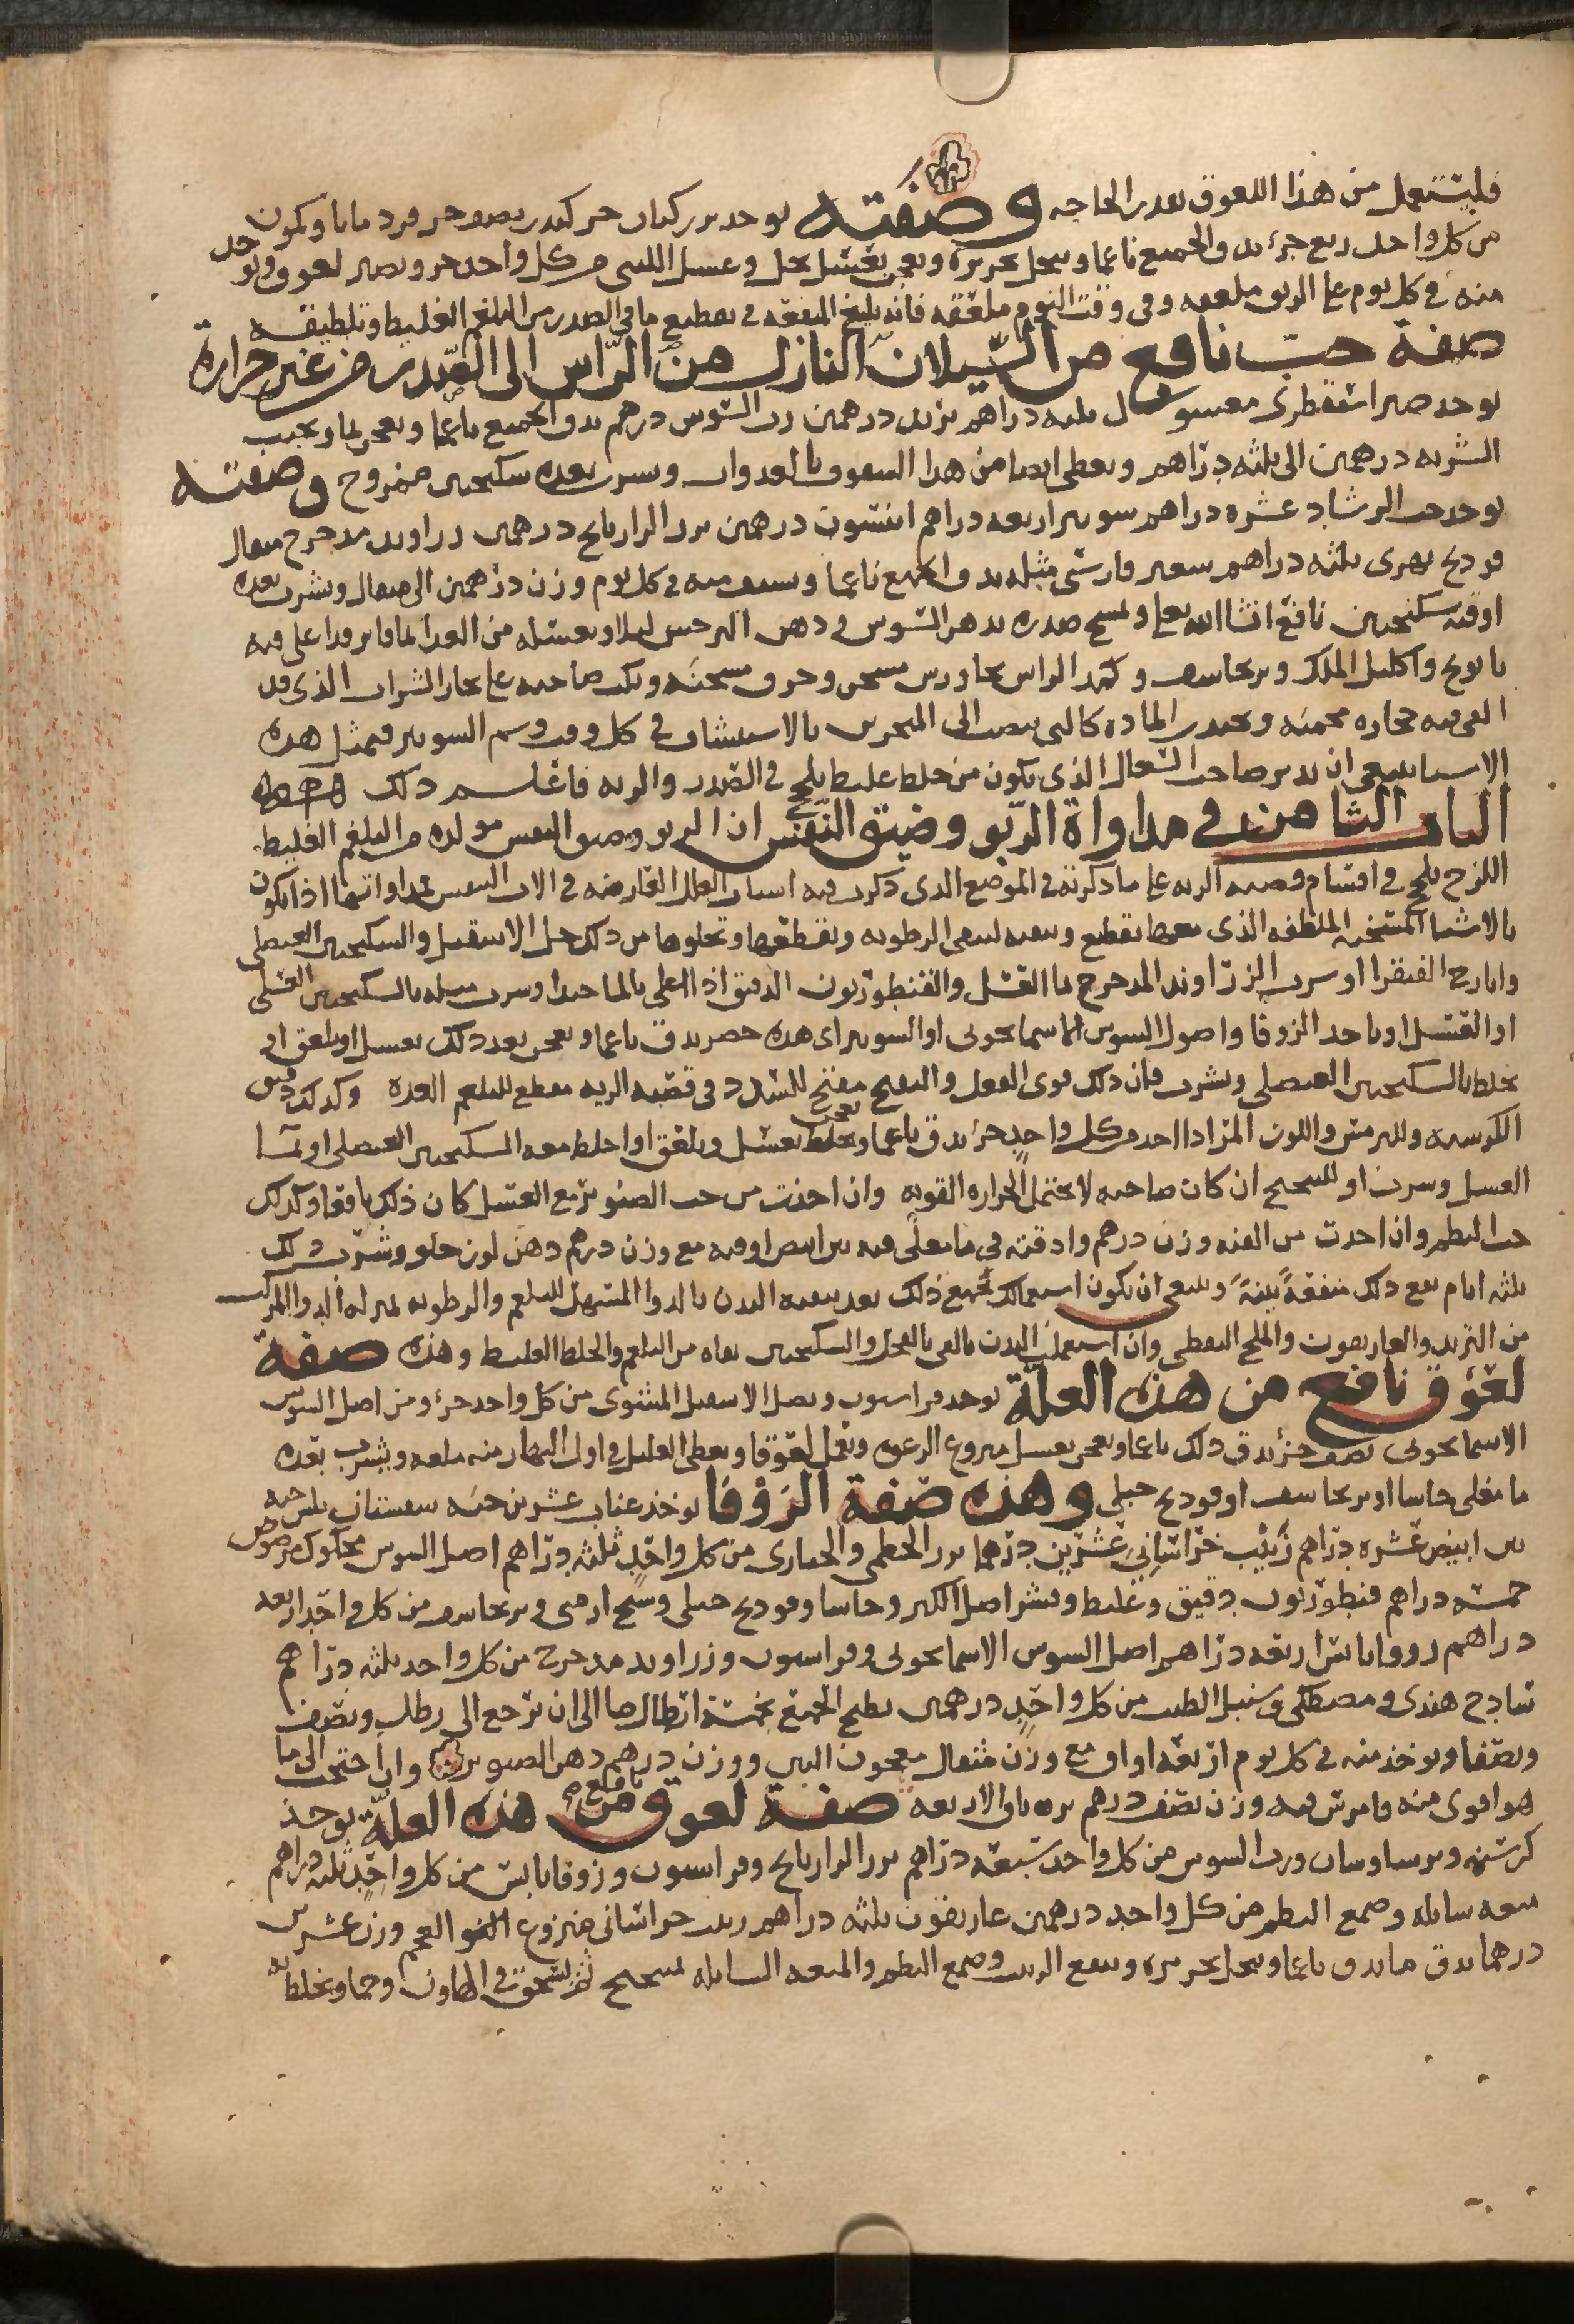 فليستعمل من هذا اللعوق بقدر الحاجه وصفته يوخذ بزر كتان جز كندر نصف جز قردمانا وكمون
من كل واحد ربع جزء يدق الجميع ناعما وينخل بحريره ويعجن بعسل نحل وعسل اللبنى من كل واحد جز ويصير لعوق ويوخذ
منه في كل يوم على الريق ملعقه وفي وقت النوم ملعقه فانه بليغ المنفعه في تقطيع ما في الصدر من البلغم الغليظ وتلطيفه
صفة حب نافع من السيلان النازل من الراس الى الصدر من غير حرارة
يوخذ صبر اسقطرى مغسول ثلثه دراهم تربد درهمين رب السوس درهم يدق الجميع ناعما ويعجن بما ويحبب
الشربه درهمين الى ثلثه دراهم ويعطى ايضا من هذا السفوف بالغدوات ويشرب بعده سكنجبين ممزوج وصفته
يوخذ حب الرشاد عشره دراهم سونيز اربعه دراهم انيسون درهمين بزر الرازيانج درهمين زراوند مدحرج مثقال
فودنج نهرى ثلثه دراهم سعتر فارسى مثله يدق الجميع ناعما ويستف منه في كل يوم وزن درهمين الى مثقال ويشرب بعده
اوقيه سكنجبين نافع ان شا الله تعالى ويمسح صدره بدهن السوس او دهن النرجس ليلا ويغسله من الغد بما فاتر قد اغلى فيه
بابونج واكليل الملك وبرنجاسف وكمد الراس بجاورس مسخن وخرق مسخنه ويكب صاحبه على بخار الشراب الذى قد
القى فيه حجاره محميه ويجذب الماده كالتى تنصب الى المنخرين بالاستنشاق في كل وقت وشم السونيز فبمثل هذه
الاشيا ينبغى ان يدبر صاحب السعال الذى يكون من خلط غليظ يلحج في الصدر والريه فاعلم ذلك
الباب الثامن في مداواة الربو وضيق النفس ان الربو وضيق النفس مولده من البلغم الغليظ
اللزج يلحج في اقسام قصبه الريه على ما ذكرته في الموضع الذى ذكرت فيه اسباب العلل العارضه في الات النفس فمداواتهما اذا يكون
بالاشيا المسخنه الملطفه الذى معها تقطيع وتنقيه لتنقى الرطوبه وتقطعها وتجلوها من ذلك خل الاسقيل والسكنجبين العنصلى
وايارج الفيقرا او شرب الزراوند المدحرج بما العسل والقنطوريون الدقيق اذا اغلى بالما جيدا وشرب مثله بالسكنجبين العسلى
او العسل او ياخذ الزوفا واصول السوس الاسمانجونى او السونيز اى هذه حضر يدق ناعما ويعجن بعد ذلك بعسل او يلعق او
يخلط بالسكنجبين العنصلى ويشرب فان ذلك قوى الفعل والنفع مفتح للسدد في قصبه الريه مقطع للبلغم وكذلك دقيق
الكرسنه والترمس واللوز المر اذا اخذ من كل واحد جزء يدق ناعما ويخلط بعسل ويلعق او اخلط معه السكنجبين العنصلى او بما
العسل وشرب او للمسخنج ان كان صاحبه لا يحتمل الحراره القويه وان اخذت من حب الصنوبر مع العسل كان ذلك نافعا وكذلك
حب البطم وان اخذت من القنه وزن درهم وادفته في ما مغلى فيه تين ابيض اوقيه مع وزن درهم دهن لوز حلو وشرب ذلك
ثلثه ايام نفع ذلك منفعةً بينةً وينبغى ان يكون استعمالك لجميع ذلك بعد تنقيه البدن بالدوا المسهل للبلغم والرطوبه بمنزله الدوا المركب
من التربد والغاريقون والملح النفطى وان استعملت البدن بالقى بالفجل والسكنجبين نقاه من البلغم والخلط الغليظ وهذه صفة
لعوق نافع من هذه العلة يوخذ فراسيون وبصل الاسقيل المشوى من كل واحد جزء ومن اصل السوس
الاسمانجونى نصف جزء يدق ذلك ناعما ويعجن بعسل منزوع الرغوه ويعمل لعوقا ويعطى العليل في اول النهار منه ملعقه ويشرب بعده
ما مغلى حاشا او برنجاسف او فودنج جبلى وهذه صفة الزوفا يوخذ عناب عشرين حبه سفستان ثلثين حبه
تين ابيض عشره دراهم زبيب خراسانى عشرين درهما بزر الخطمى والخبازى من كل واحد ثلثه دراهم اصل السوس محكوك مرضوض
خمسه دراهم قنطوريون دقيق وغليظ وقشر اصل الكبر وحاشا وفودنج جبلى وشيح ارمنى وبرنجاسف من كل واحد اربعه
دراهم زوفا يابس اربعه دراهم اصل السوس الاسمانجونى وفراسيون وزراوند مدحرج من كل واحد ثلثه دراهم
سادج هندى ومصطكى وسنبل الطيب من كل واحد درهمين يطبخ الجميع بخمسة ارطال ما الى ان يرجع الى رطل ونصف
ويصفا ويوخذ منه في كل يوم اربعه اواق مع وزن مثقال معجون البى ووزن درهم دهن الصنوبر وان احتجت الى ما
هو اقوى منه فامرس فيه وزن نصف درهم ترياق الاربعه صفة لعوق نافع من هذه العلة يوخذ
كرسنه وبرسياوشان ورب السوس من كل واحد سبعه دراهم بزر الرازيانج وفراسيون وزوفا يابس من كل واحد ثلثه دراهم
ميعه سايله وصمغ البطم من كل واحد درهمين غاريقون ثلثه دراهم زبيب خراسانى منزوع العجم وزن عشرين
درهما يدق ما يدق ناعما وينخل بحريره وينقع الزبيب وصمغ البطم والميعه السايله بمسخنج ثم يسحق في الهاون وحما ويخلط به